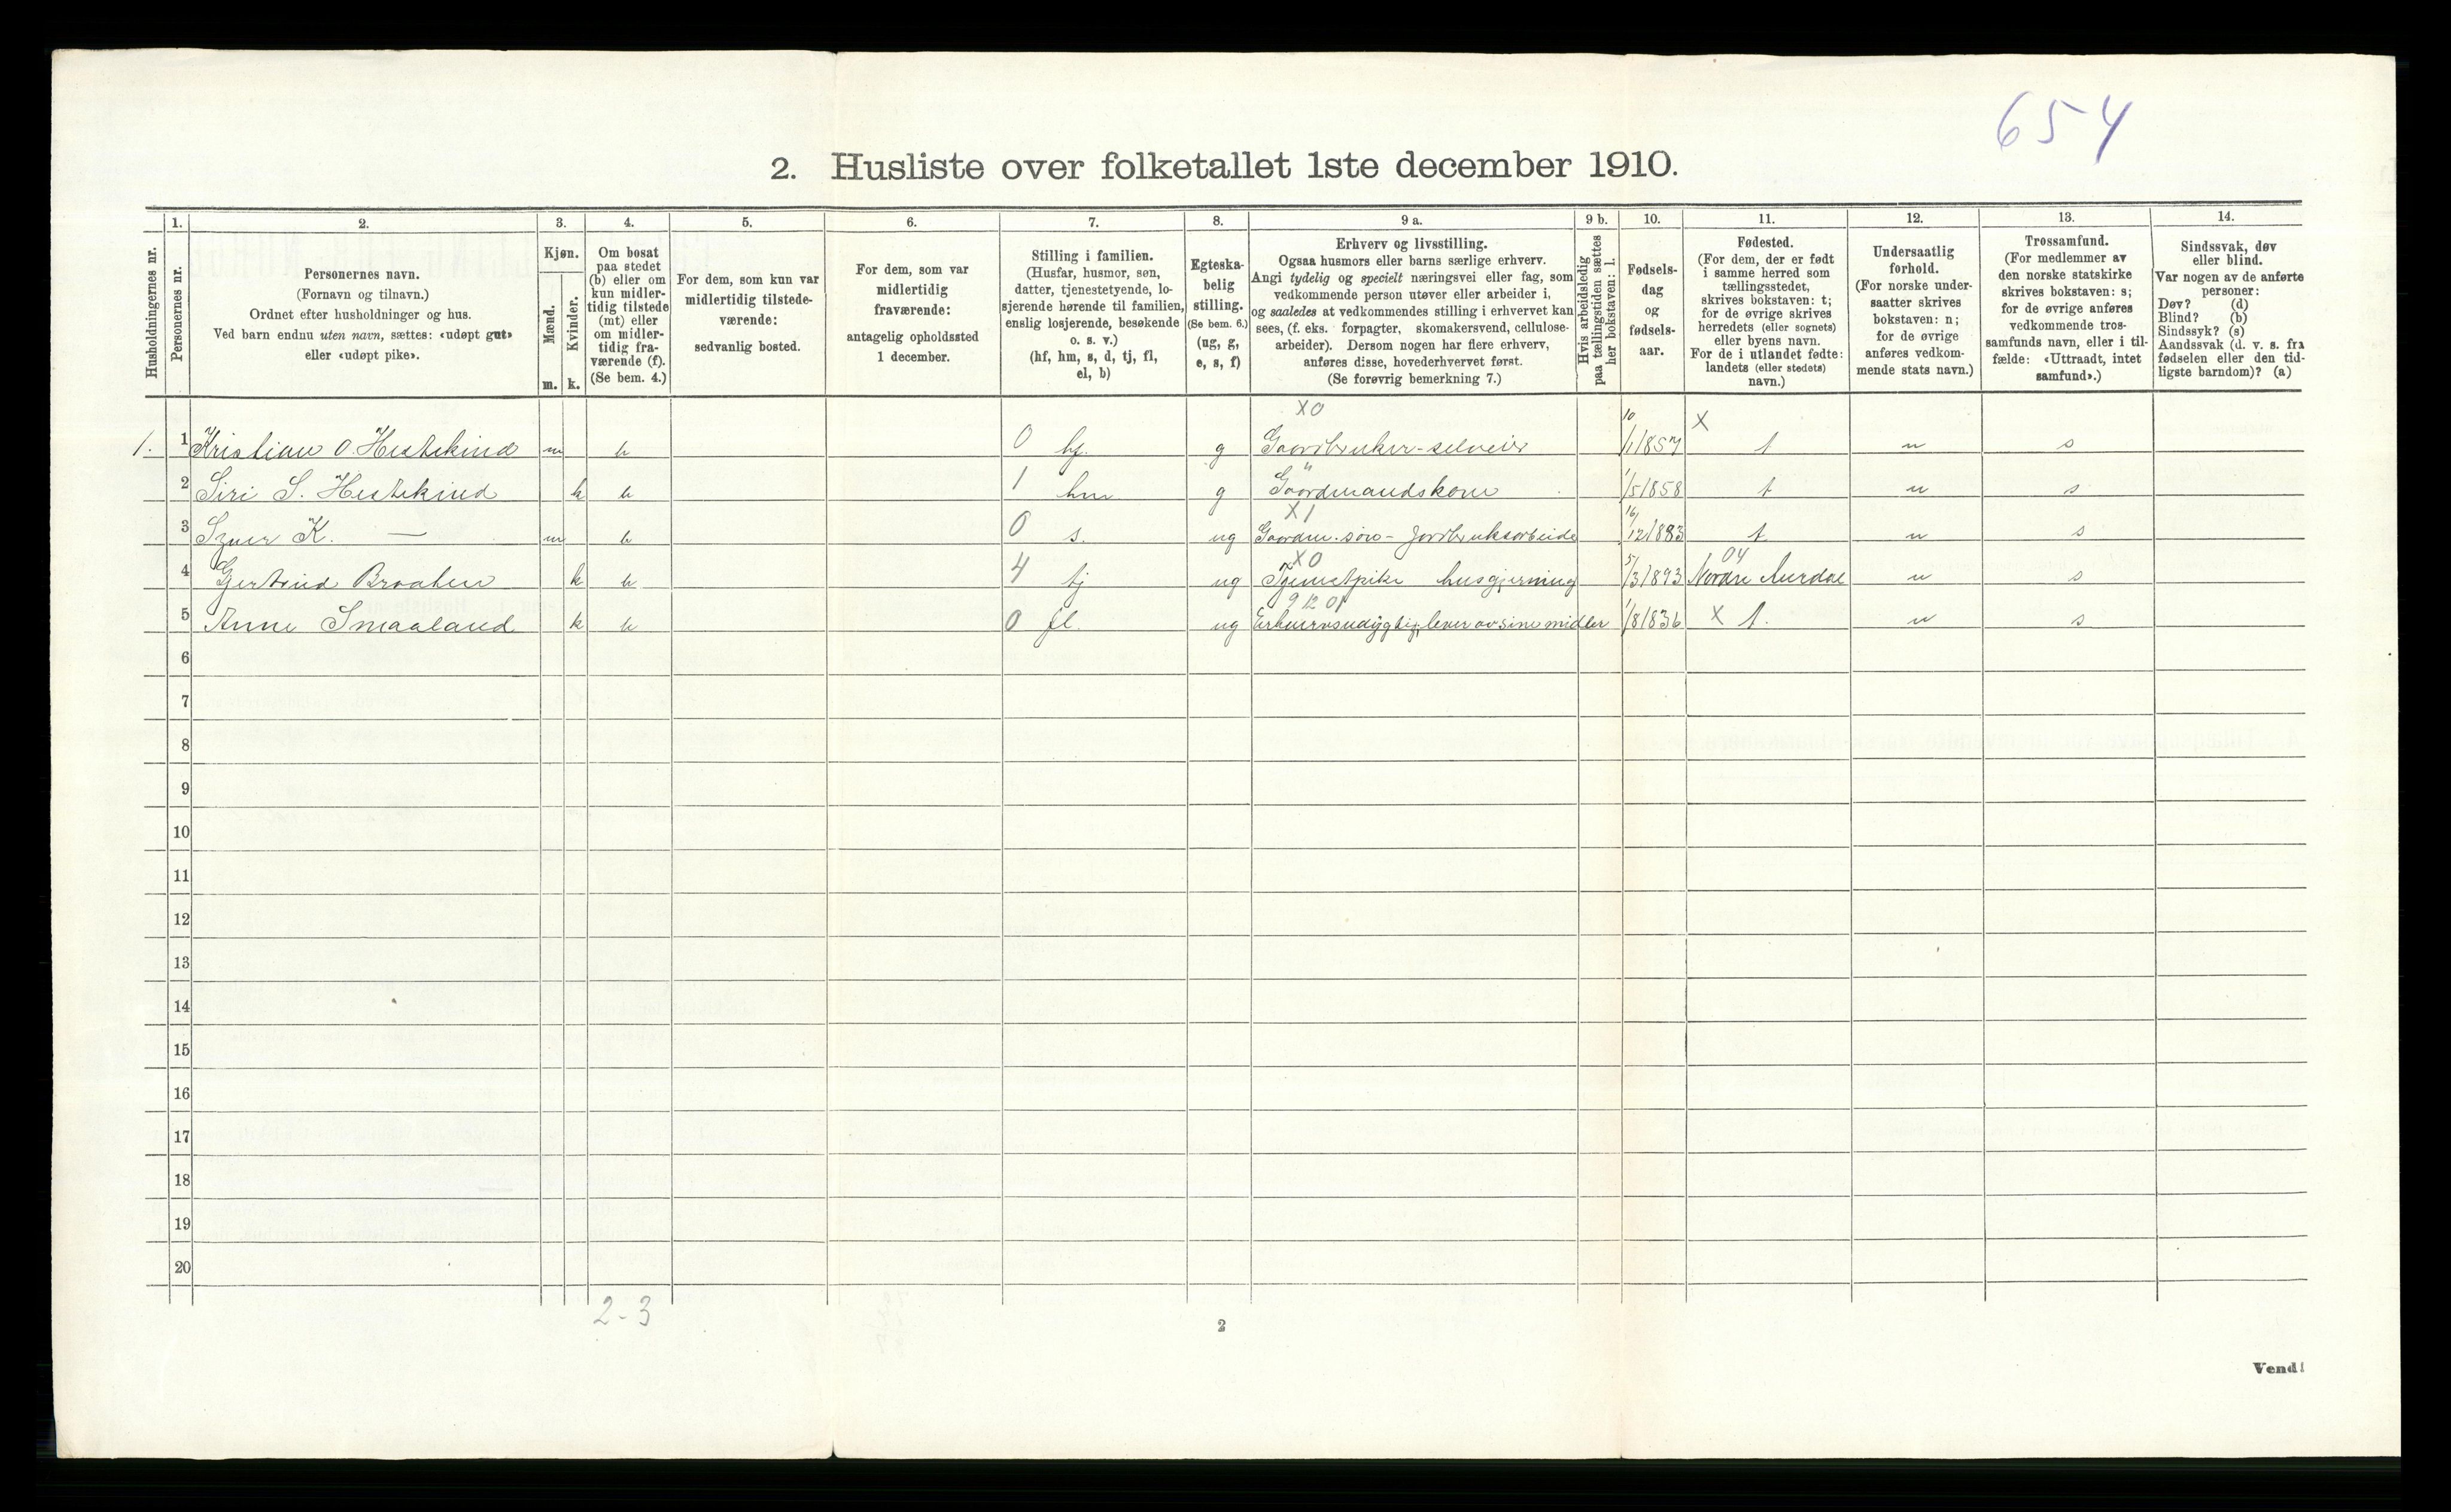 654
2. Husliste over folketallet 1ste december 1910.
Husholdningernes nr.
1.
Personernes nr.
2.
Personernes navn.
(Fornavn og tilnavn.)
Ordnet efter husholdninger og hus.
Ved barn endnu uten navn, sættes: «udøpt gut»
eller «udøpt pike».
3.
Kjøn.
Mænd.
Kvinder.
m. k.
4.
Om bosat
paa stedet
(b) eller om
kun midler-
tidig tilstede
(mt) eller
om midler-
tidig fra-
værende (f).
(Se bem. 4.)
5.
For dem, som kun var
midlertidig tilstede-
værende:
sedvanlig bosted.
6.
For dem, som var
midlertidig
fraværende:
antagelig opholdssted
1 december.
7.
Stilling i familien.
(Husfar, husmor, søn,
datter, tjenestetyende, lo-
sjerende hørende til familien,
enslig losjerende, besøkende
o. s. v.)
(hf, hm, s, d, tj, fl,
el, b)
8.
Egteska-
belig
stilling.
(Se bem. 6.)
(ug, g,
e, s, f)
9 a.
Erhverv og livsstilling.
Ogsaa husmors eller barns særlige erhverv.
Angi tydelig og specielt næringsvei eller fag, som
vedkommende person utøver eller arbeider i,
og saaledes at vedkommendes stilling i erhvervet kan
sees, (f. eks. forpagter, skomakersvend, cellulose-
arbeider). Dersom nogen har flere erhverv,
anføres disse, hovederhvervet først.
(Se forøvrig bemerkning 7.)
9 b.
Hvis arbeidsledig
paa tællingstiden sættes
her bokstaven: l.
10.
Fødsels-
dag
og
fødsels-
aar.
11.
Fødested.
(For dem, der er født
i samme herred som
tællingsstedet,
skrives bokstaven: t;
for de øvrige skrives
herredets (eller sognets)
eller byens navn.
For de i utlandet fødte:
landets (eller stedets)
navn.)
12.
Undersaatlig
forhold.
(For norske under-
saatter skrives
bokstaven: n;
for de øvrige
anføres vedkom-
mende stats navn.)
13.
Trossamfund.
(For medlemmer av
den norske statskirke
skrives bokstaven: s;
for de øvrige anføres
vedkommende tros-
samfunds navn, eller i til-
fælde: «Uttraadt, intet
samfund».)
14.
Sindssvak, døv
eller blind.
Var nogen av de anførte
personer:
Døv? (d)
Blind? (b)
Sindssyk? (s)
Aandssvak (d. v. s. fra
fødselen eller den tid-
ligste barndom)? (a)
X0 X
1. 1 Kristian O. Hestekind m b 0 hf. g Gaardbruker-selveier 10/1 1857 t n s
2 Siri S. Hestekind k b 1 hm g Gaardmandskone 1/5 1858 t n s
X1
3 K. — m b 0 s. ug Gaardm. søn - Jordbruksarbeide 16/12 1883 t n s
X0 04
4 Gjertrud Braaten k b 4 tj ug Tjenestpike husgjerning 5/3 1893 Nordre Aurdal n s
9 12 01
5 Anne Smaaland k b 0 fl. ug Erhvervsudygtig, lever av sine midler 1/8 1836 X t. n s
6
7
8
9
10
11
12
13
14
15
16
17
18
19
20
2-3
2
Vend!